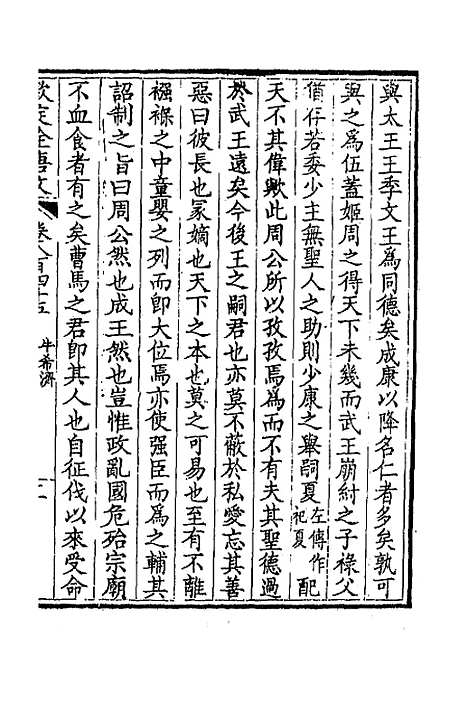 與太王王季文王爲同德矣成康以降名仁者多矣孰可
與之爲伍蓋姬周之得天下未幾而武王崩紂之子祿父
猶存若委少主無聖人之助則少康之舉嗣夏左傳作祀夏配
天不其偉歟此周公所以孜孜焉爲而不有夫其聖德過
於武王遠矣今後王之嗣君也亦莫不蔽於私愛忘其善
惡曰彼長也冢嫡也天下之本也莫之可易也至有不離
襁褓之中童嬰之列而卽大位焉亦使强臣而爲之輔其
詔制之旨曰周公然也成王然也豈惟政亂國危殆宗廟
不血食者有之矣曹馬之君卽其人也自征伐以來受命
欽定全唐文
卷八百四十五
牛希濟